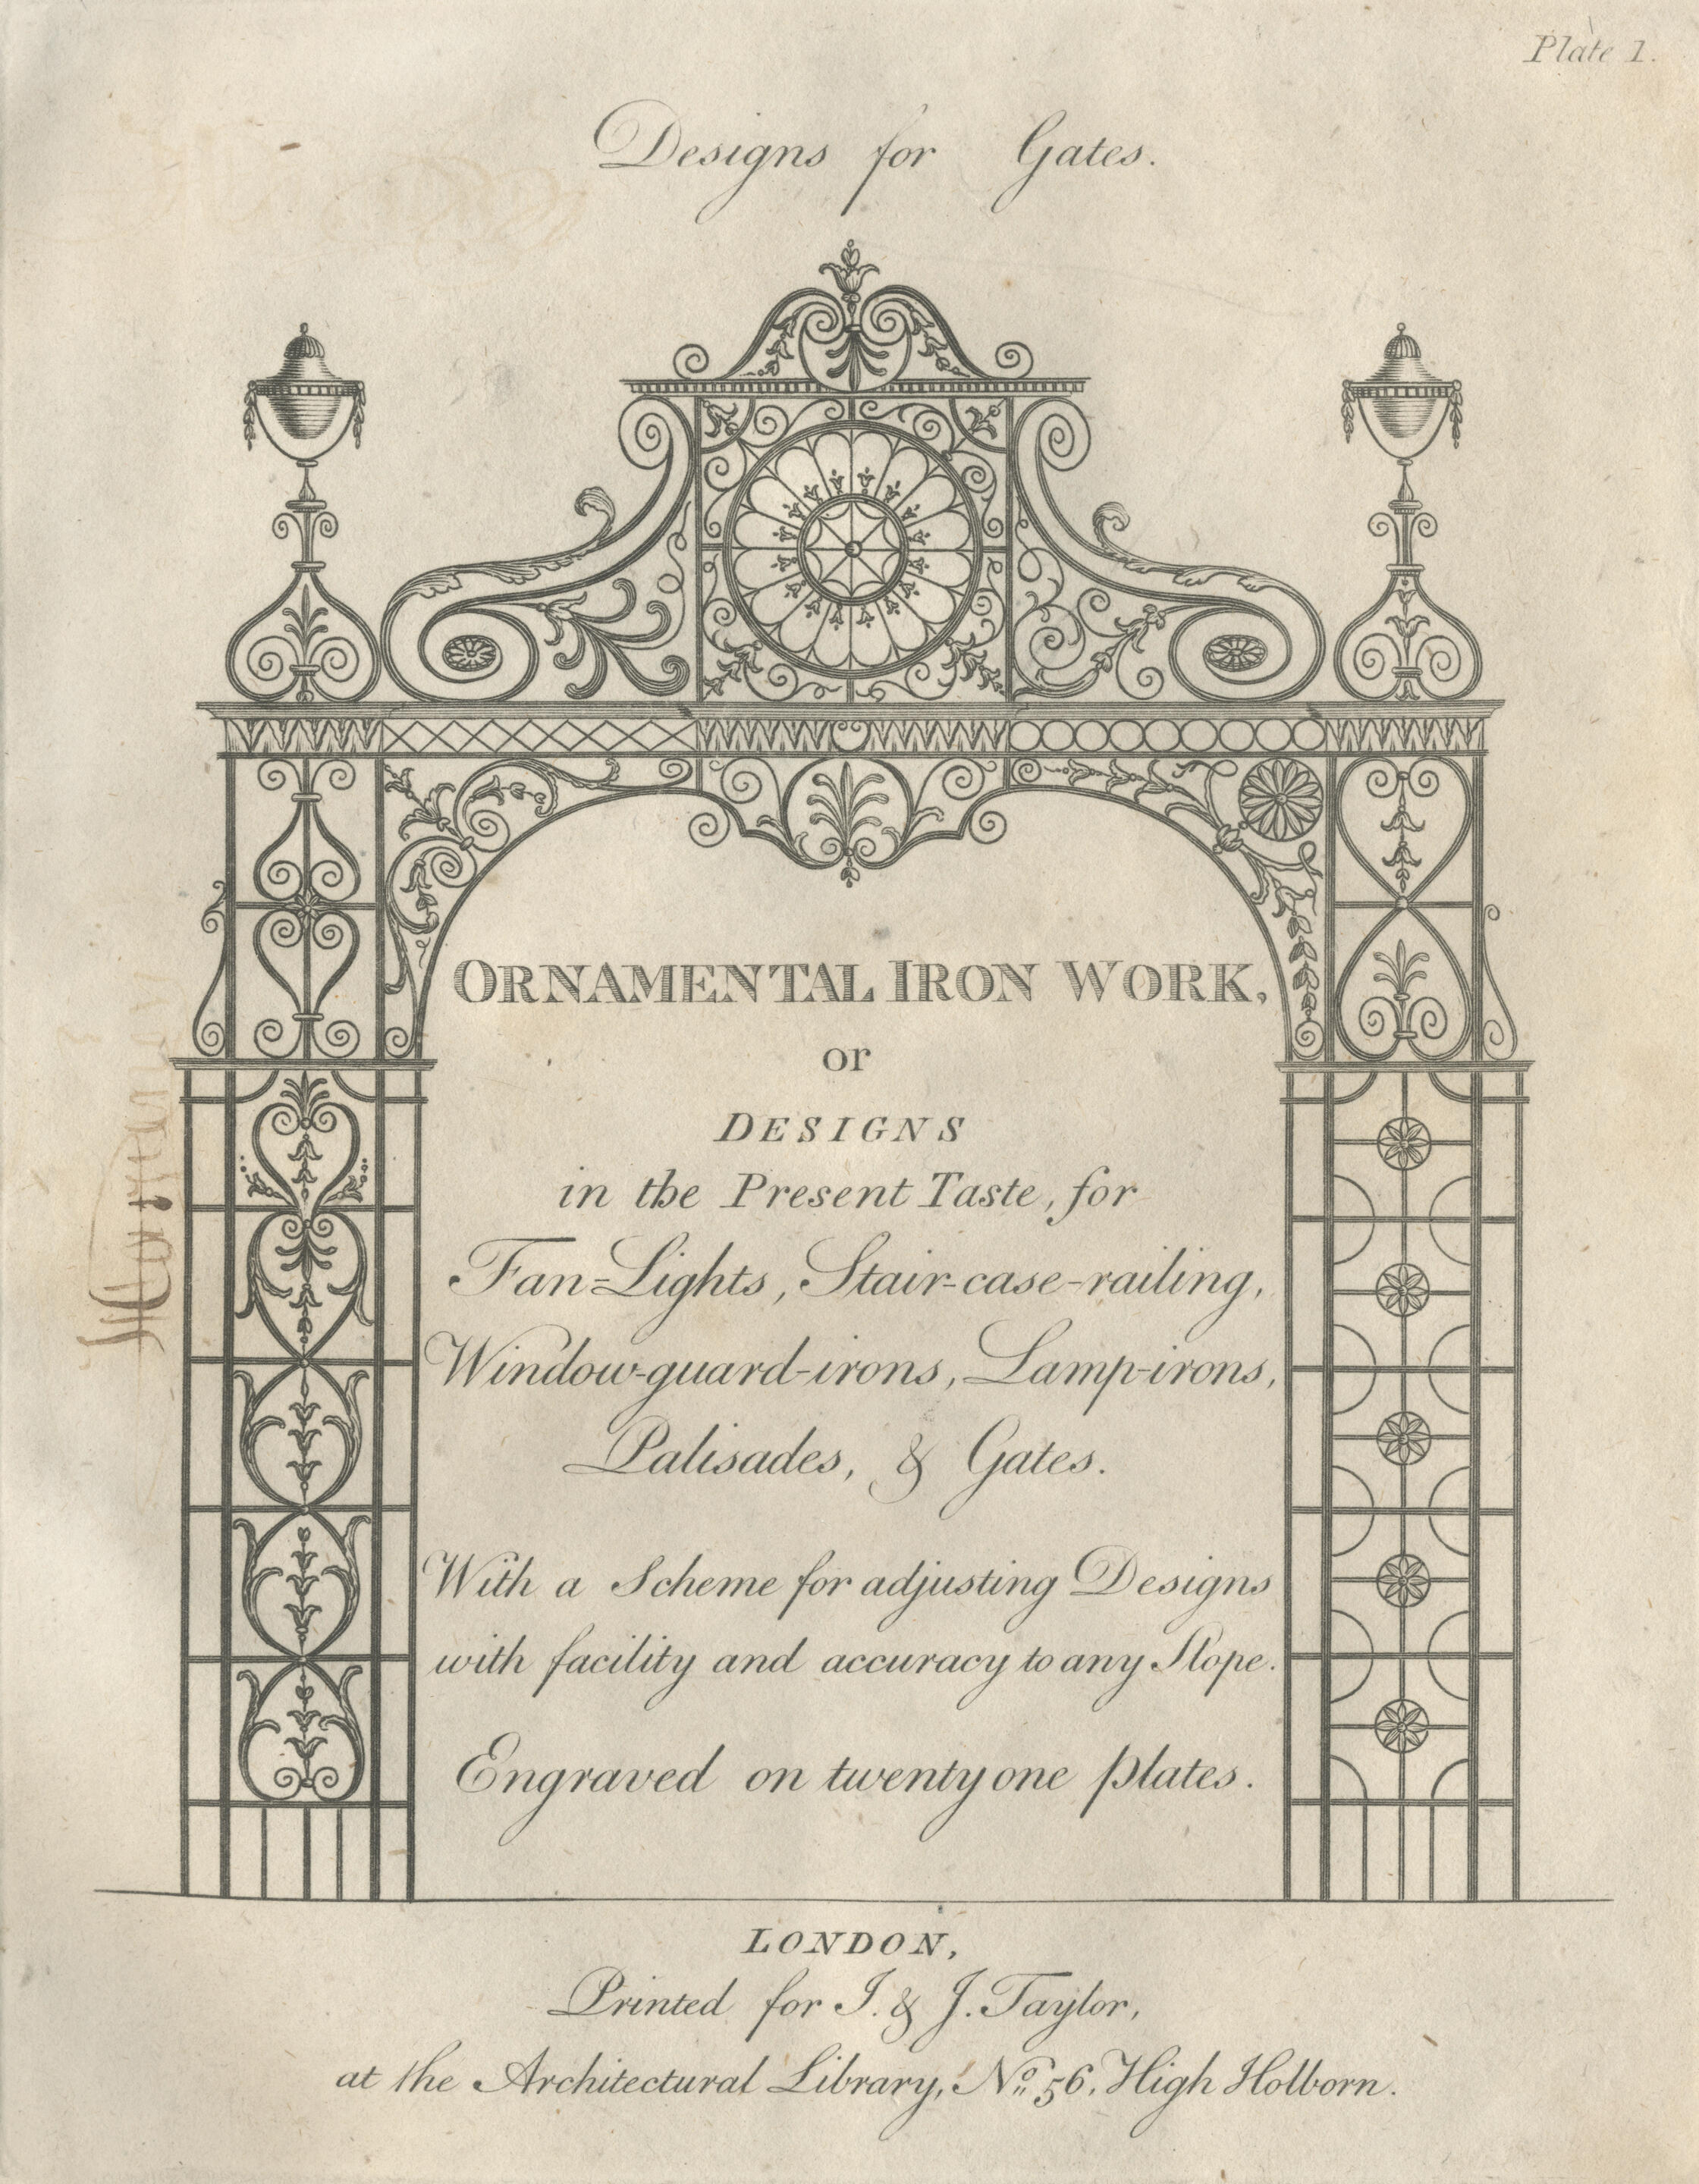 Plate 1.
Designs for Gates.
ORNAMENTAL IRON WORK,
or
DESIGNS
in the Present Taste, for
Fan-Lights, Stair-case-railing,
Window-guard-irons, Lamp-irons,
Palisades, & Gates.
With a Scheme for adjusting Designs
with facility and accuracy to any Slope.
Engraved on twenty one plates.
LONDON,
Printed for I. & J. Taylor,
at the Architectural Library, No. 56, High Holborn.